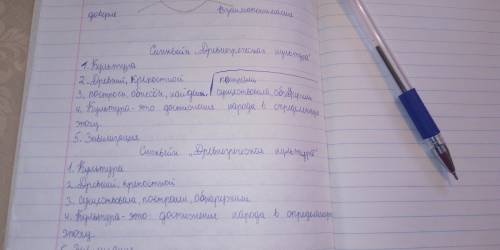 доверие Взаимопонимание
Синквейн "Древнегреческая культура"
1. Культура
2. Древний, крепостной построили
3. построен, обнесён, найден. существовала, обнаружили
4. Культура - это достижения народа в определённую
эпоху.
5. Цивилизация
Синквейн "Древнегреческая культура"
1. Культура
2. Древний, крепостной
3. Существовала, построили, обнаружили
4. Культура - это достижения народа в определённую
эпоху.